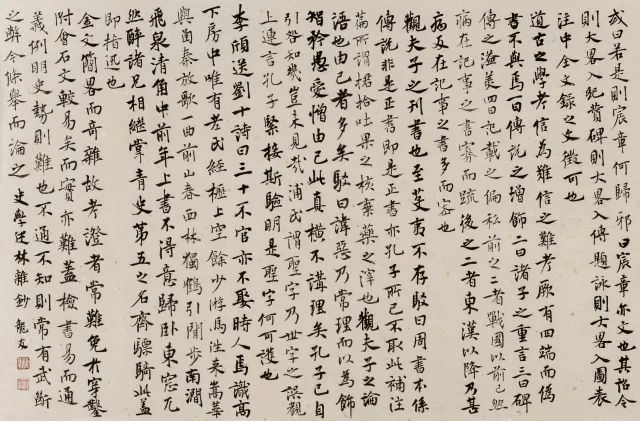 或曰若是則宸章何歸邪曰宸章亦文也其詔令
則大畧入紀賛碑則大畧入傳題詠則大畧入圖表
注中全文錄之文徵可也
道古之學考信為難信之難考厥有四端而偽
書不與焉曰傳說之增飾二曰諸子之重言三曰碑
傳之溢美四曰記載之偏私前之二者戰國以前已然
病在記事之書寡而疏後之二者東漢以降乃甚
病反在記事之書多而容也
觀夫子之刊書也至芟夷不存駁曰周書本係
傳說非是正書即是正書亦孔子所已不取此補注
篇所謂捃拾吐果之核棄藥之滓也觀夫子之論
語也由己者多矣駁曰諱惡乃常理而以為飾
智矜愚愛憎由己此真橫不講理矣孔子已自
引咎知幾豈未見哉浦氏謂聖字乃世字之誤觀
上連言孔子緊接斯驗明是聖字何可護也
李頎送劉十詩曰三十不官亦不娶時人焉識高
下房中唯有老氏經櫪上空餘少游馬往來嵩華
與函秦放歌一曲前山春西林獨鶴引閒步南澗
飛泉清角巾前年上書不得意歸卧東窓兀
然醉諸兄相繼掌青史第五之名齊驃騎此蓋
即指迅也
金文簡畧而奇雜故考證者常難免於穿鑿
附會石文較易矣而實亦難蓋檢書易而通
義例明史勢則難也不通不知則常有武斷
之弊今條舉而論之 史學述林雜鈔 龍友